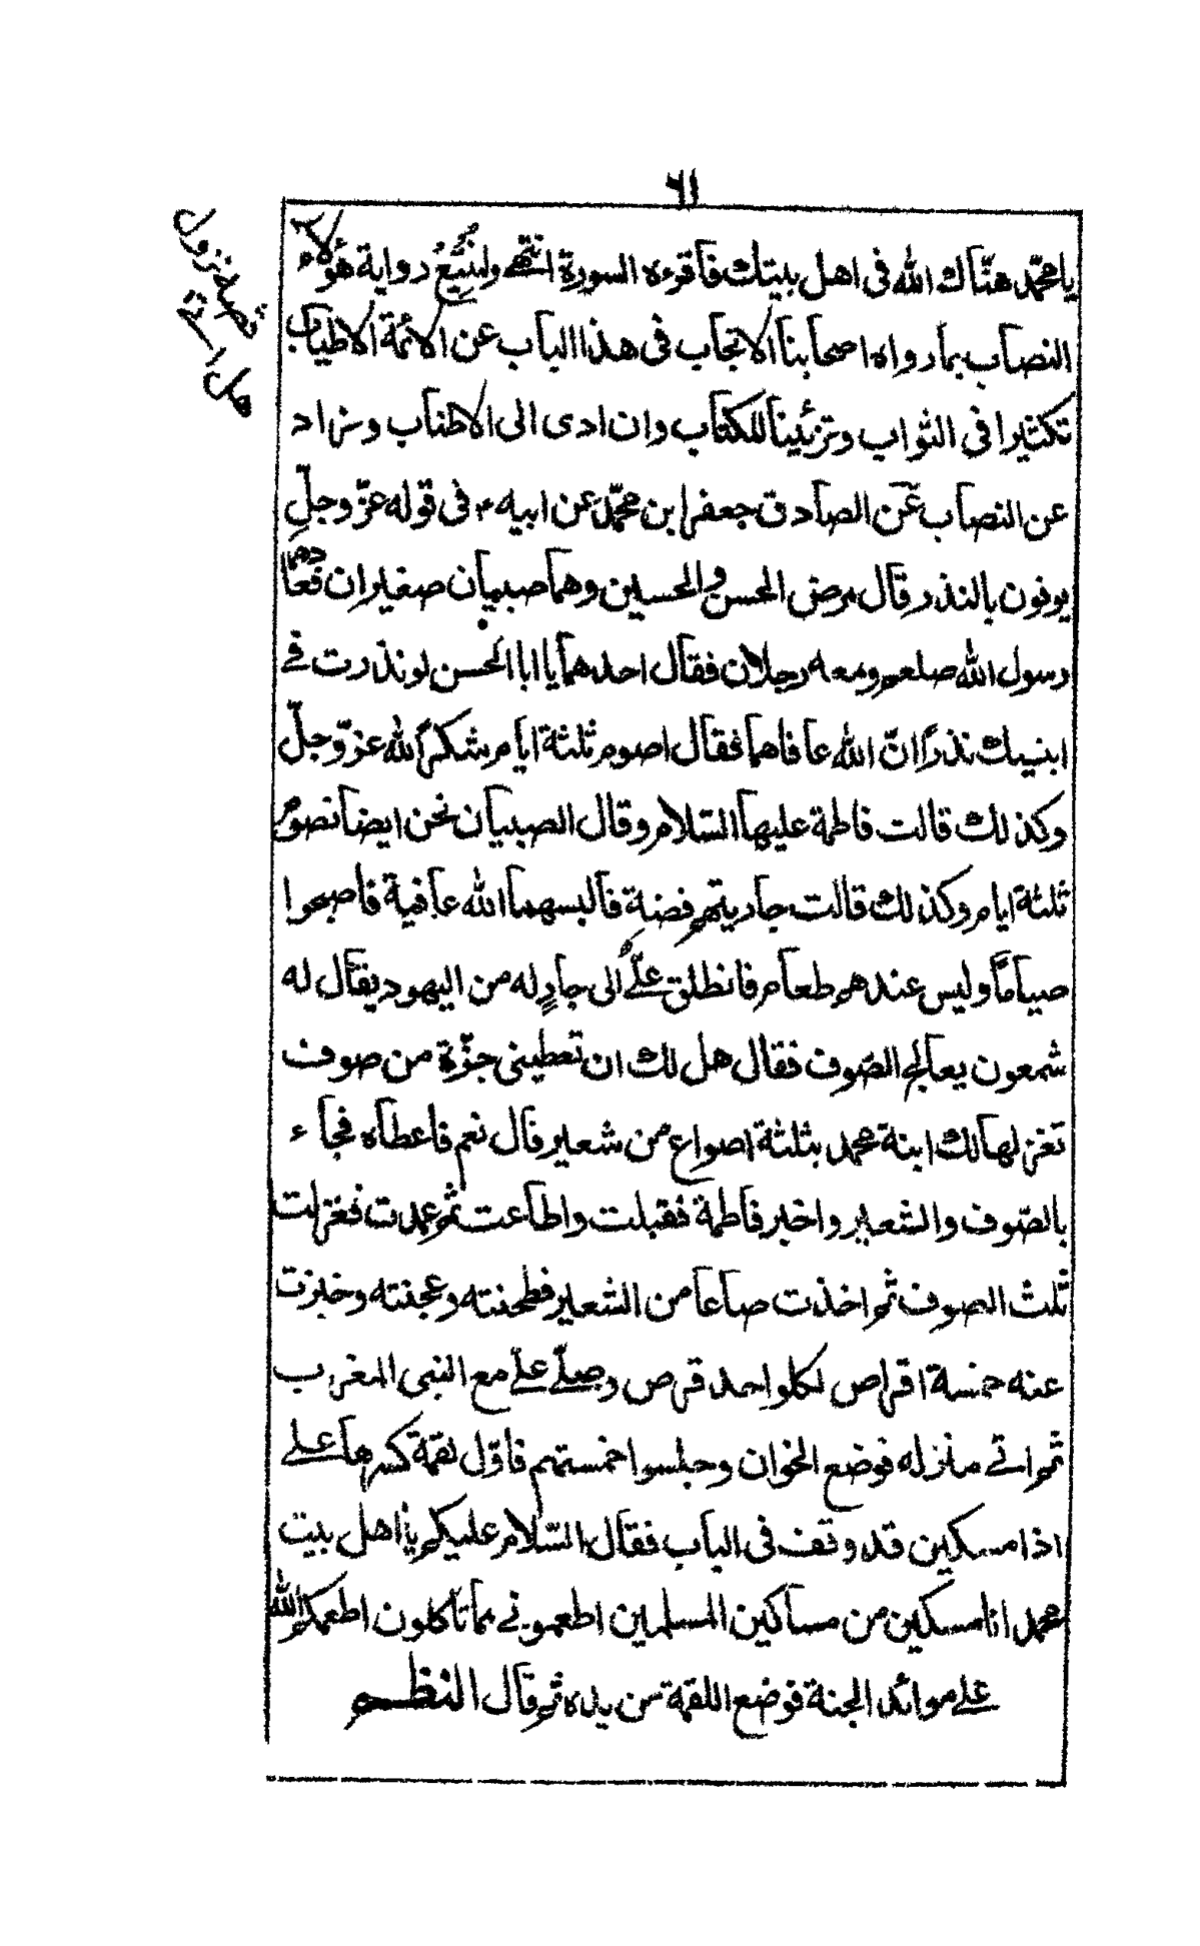 ٦١
يا محمّد هنّاك الله فى اهل بيتك فاقرءه السورة انتهى ولنتبّع رواية هؤلاء
النصاب بما رواه اصحابنا الانجاب فى هذا الباب عن الائمة الاطياب
تكثيرا فى الثواب وتزئينا للكتاب وان ادى الى الاطناب وزاد
عن النصاب عن الصادق جعفر ابن محمّد عن ابيه ع فى قوله عزّ وجلّ
يوفون بالنذر قال مرض الحسن والحسين وهما صبيان صغيران فعادهما
رسول الله صلعم ومعه رجلان فقال احدهما يا ابا الحسن لو نذرت فى
ابنيك نذراً انّ الله عافاهما فقال اصوم ثلثة ايام شكراً لله عزّ وجلّ
وكذلك قالت فاطمة عليها السّلام وقال الصبيان نحن ايضا نصوم
ثلثة ايام وكذلك قالت جاريتهم فضة فالبسهما الله عافية فاصبحوا
صياماً وليس عندهم طعام فانطلق علىّ الى جارٍ له من اليهود يقال له
شمعون يعالج الصّوف فقال هل لك ان تعطينى جزّة من صوف
تغزلها لك ابنة محمد بثلثة اصواع من شعير قال نعم فاعطاه فجاء
بالصّوف والشعير واخبر فاطمة فقبلت واطاعت ثم عمدت فغزلت
ثلث الصوف ثم اخذت صاعا من الشعير فطحنته وعجنته وخبزت
عنه خمسة اقراص لكل واحد قرص وصلّى علىّ مع النبى المغرب
ثم اتى منزله فوضع الخوان وجلسوا خمستهم فاوّل لقمة كسرها على
اذا مسكين قد وقف فى الباب فقال السّلام عليكم يا اهل بيت
محمد انا مسكين من مساكين المسلمين اطعمونى مما تاكلون اطعمكم الله
على موائد الجنة فوضع اللقمة من يده ثم قال النظم
قصة نزول
هل اتى